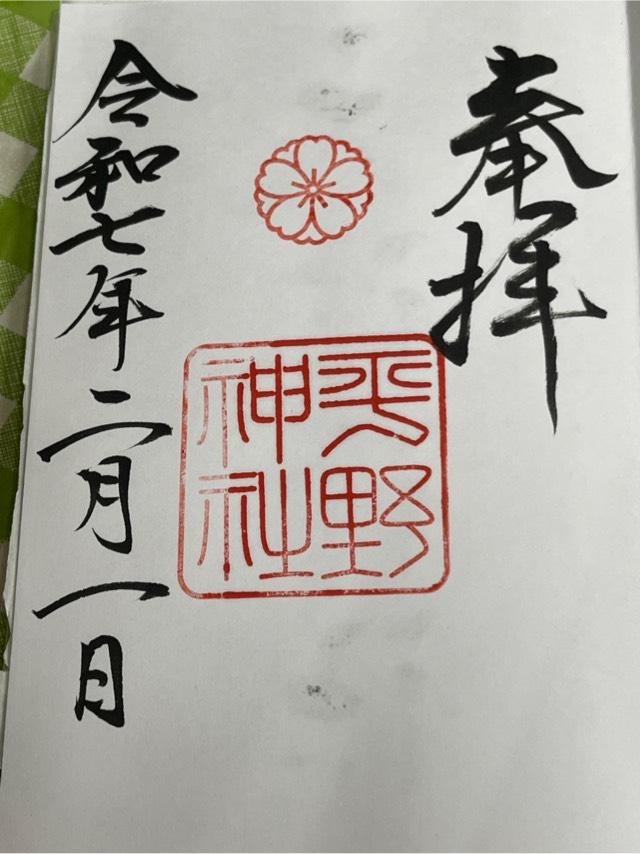 奉拝
平野
神社
令和七年二月一日